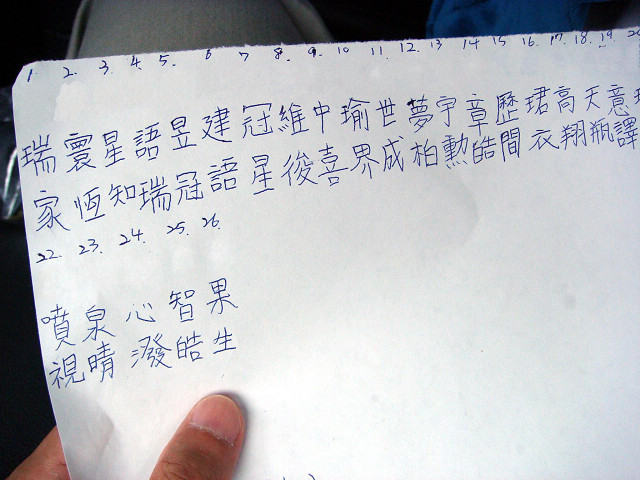 1 2. 3. 4. 5. 6 7 8. 9. 10 11. 12. 13 14 15 16. 17. 18. 19 20
瑞寰星語昱建冠維中瑜世夢宇章歷珺高天意
家恆知瑞冠語星後喜界成柏勲皓間衣翔瓶譯
22. 23. 24. 25. 26.
噴泉心智果
視晴潑皓生